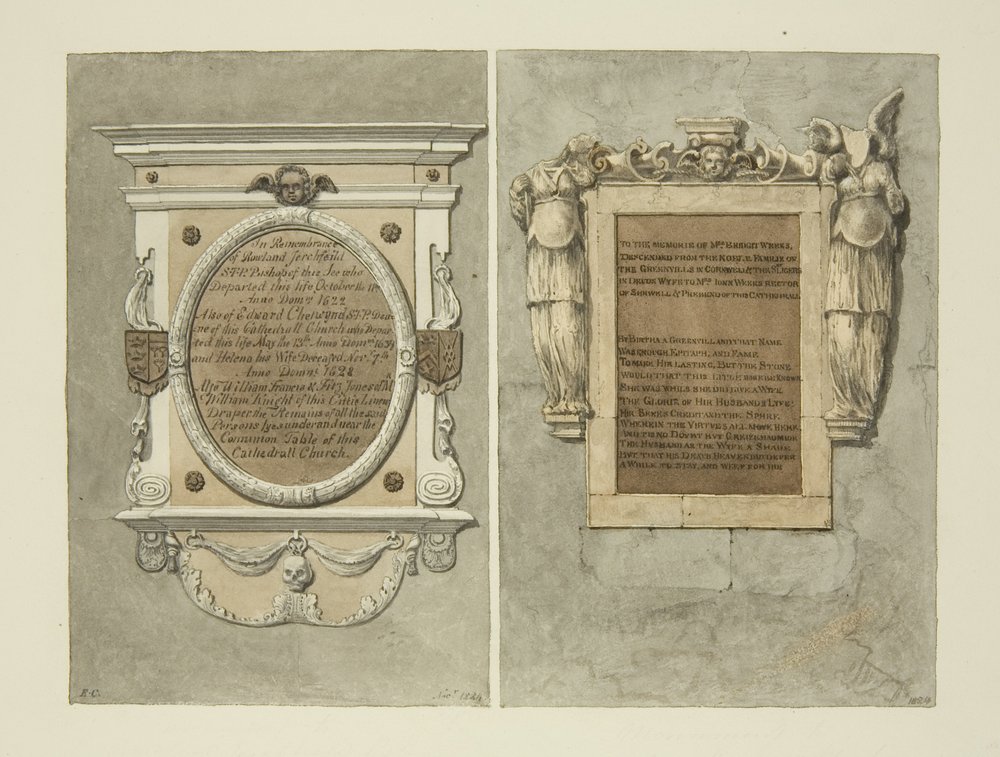 In Remembrance
of Rowland Serchfeild
S.T.P. Bishop of this See who
Departed this life October the 11th
Anno Domni 1622
Also of Edward Chetwynd S.T.P. Dea-
ne of this Cathedrall Church who Depar
ted this life May the 13th Anno Domni 1639
and Helena his Wife Deceased Novr 7th
Anno Domni 1628
Also William Francis &
Jones of
William Knight of this Cittie Linen
Draper the Remains of all the said
Persons lye under and near the
Communion Table of this
Cathedrall Church.
E.C.
Novr 1824
TO THE MEMORIE OF Mrs BRIDGIT WEEKS,
DESCENDED FROM THE NOBLE FAMILIE OF
THE GREENVILLS IN CORNWELL & THE
IN DEVON WYFE TO Mr IOHN WEEKS RECTOR
OF SHIRWELL & PREBEND OF THIS CATHEDRALL
BY BIRTH A GREENVILL AND THAT NAME
WAS ENOUGH EPITAPH, AND FAME
TO MAKE HIR LASTING, BUT THE STONE
WOULD THAT THIS LITLE MORE BE KNOWN.
SHE WAS WHILS SHE DID LIVE A WIFE
THE GLORIE OF HIR HUSBANDS LIFE:
HIR SEXES CREDIT AND THE SPHRE
WHEREIN THE VIRTUES ALL MOVE HERE
AND TIS NO DOUBT BUT GRIEFE
THE HUSBAND AS THE WYFE A SHADE
BUT THAT HIS DEATH HEAVEN DID DEFER
A WHILE TO STAY, AND WEEP FOR HIR
1824